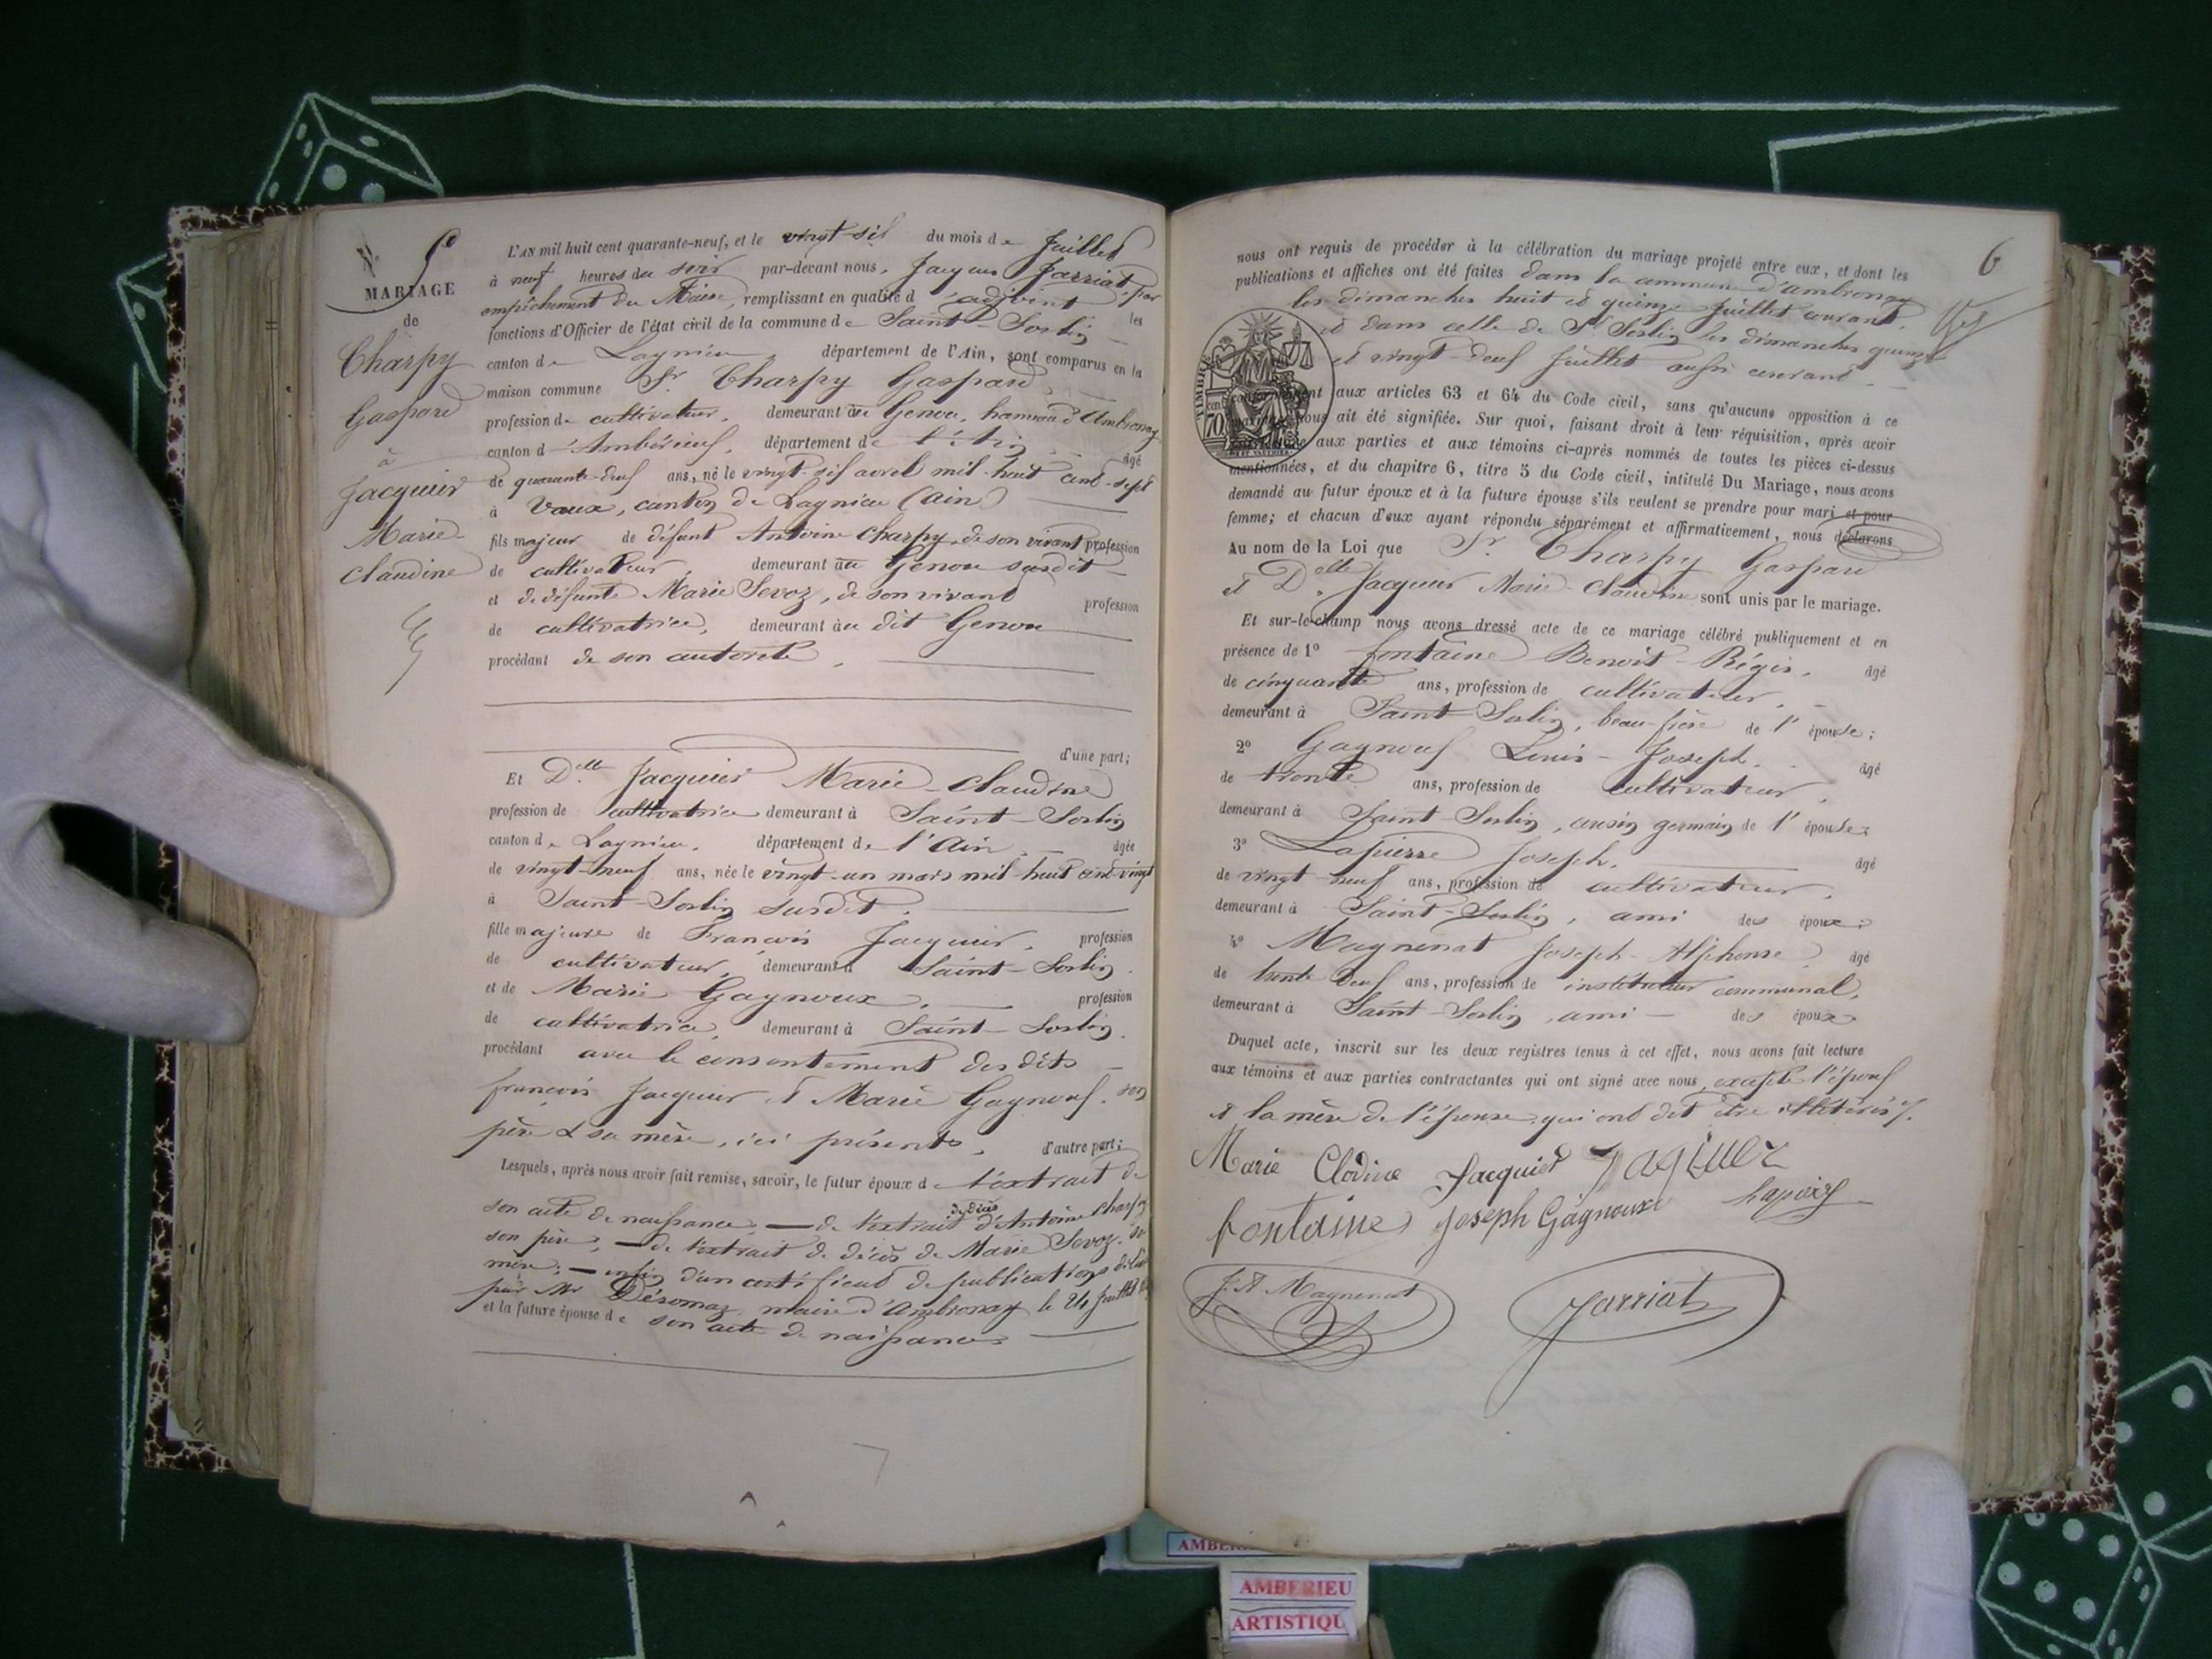 MARIAGE
de
Charpy
Gaspard
à
Jacquier
Marie-
Claudine
L'AN mil huit cent quarante-neuf, et le vingt-six du mois de Juillet
à neuf heures du soir par-devant nous, Jacques Jarriat, par
empêchement du Maire, remplissant en qualité d'adjoint les
fonctions d'Officier de l'état civil de la commune de Saint-Sorlin
canton de Lagnieu, département de l'Ain, sont comparus en la
maison commune Sr Charpy Gaspard,
profession de cultivateur, demeurant au Genou, hameau d'Ambronay
canton d'Ambérieux, département de l'Ain âgé
de quarante-deux ans, né le vingt-six avril mil-huit cent-sept
à Vaux, canton de Lagnieu (Ain)
fils majeur de défunt Antoine Charpy, de son vivant profession
de cultivateur, demeurant au Genou susdit
et de défunte Marie Sevoz, de son vivant profession
de cultivatrice, demeurant au dit Genou
procédant de son autorité,
d'une part;
Et Delle Jacquier Marie-Claudine
profession de cultivatrice demeurant à Saint-Sorlin
canton de Lagnieu, département de l'Ain âgée
de vingt-neuf ans, née le vingt-un mars mil-huit cent-vingt
à Saint-Sorlin susdit,
fille majeure de François Jacquier, profession
de cultivateur, demeurant à Saint-Sorlin,
et de Marie Gagnoux, profession
de cultivatrice, demeurant à Saint-Sorlin,
procédant avec le consentement des dits
françois Jacquier & Marie Gagnoux, son
père & sa mère, ici présents, d'autre part;
Lesquels, après nous avoir fait remise, savoir, le futur époux de l'extrait de
son acte de naissance; — de l'extrait de décès d'Antoine Charpy
son père; — de l'extrait de décès de Marie Sevoz, sa
mère; — enfin d'un certificat de publications délivré
par Mr Désomaz, maire d'Ambronay le 24 Juillet
et la future épouse de son acte de naissance
6
nous ont requis de procéder à la célébration du mariage projeté entre eux, et dont les
publications et affiches ont été faites dans la commune d'Ambronay
les dimanches huit et quinze Juillet courant,
et dans celle de St Sorlin les dimanches quinze
et vingt-deux Juillet aussi courant
TIMBRE
70
conformément aux articles 63 et 64 du Code civil, sans qu'aucune opposition à ce
mariage nous ait été signifiée. Sur quoi, faisant droit à leur réquisition, après avoir
aux parties et aux témoins ci-après nommés de toutes les pièces ci-dessus
mentionnées, et du chapitre 6, titre 5 du Code civil, intitulé Du Mariage, nous avons
demandé au futur époux et à la future épouse s'ils veulent se prendre pour mari et pour
femme; et chacun d'eux ayant répondu séparément et affirmativement, nous déclarons
Au nom de la Loi que Sr Charpy Gaspard
et Delle Jacquier Marie-Claudine sont unis par le mariage.
Et sur-le-champ nous avons dressé acte de ce mariage célébré publiquement et en
présence de 1° fontaine Benoît-Régis, âgé
de cinquante ans, profession de cultivateur,
demeurant à Saint-Sorlin, beau-frère de l'épouse;
2° Gagnoux Louis-Joseph, âgé
de trente ans, profession de cultivateur,
demeurant à Saint-Sorlin, cousin germain de l'épouse;
3° Lapierre Joseph, âgé
de vingt-neuf ans, profession de cultivateur,
demeurant à Saint-Sorlin, ami des époux;
4° Magnenat Joseph-Alphonse, âgé
de trente-deux ans, profession de instituteur communal,
demeurant à Saint-Sorlin, ami des époux
Duquel acte, inscrit sur les deux registres tenus à cet effet, nous avons fait lecture
aux témoins et aux parties contractantes qui ont signé avec nous, excepté l'époux
& la mère de l'épouse, qui ont dit être illitérés.
Marie Clodine Jacquier Jaquier
fontaine Joseph Gagnoux
J. A Magnenat Jarriat
AMBERIEU
ARTISTIQU